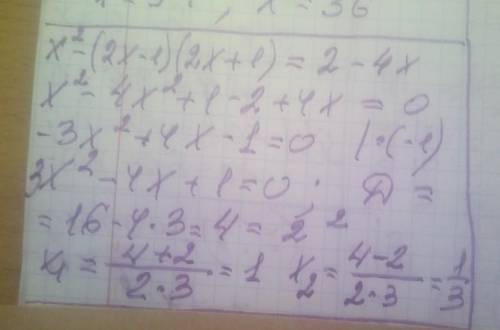 x = 36
x²-(2x-1)(2x+1) = 2-4x
x²-4x²+1-2+4x = 0
-3x²+4x-1=0 | · (-1)
3x²-4x+1=0; D =
= 16-4·3=4= 2²
x₁ = (4+2)/(2·3) = 1 x₂ = (4-2)/(2·3) = 1/3